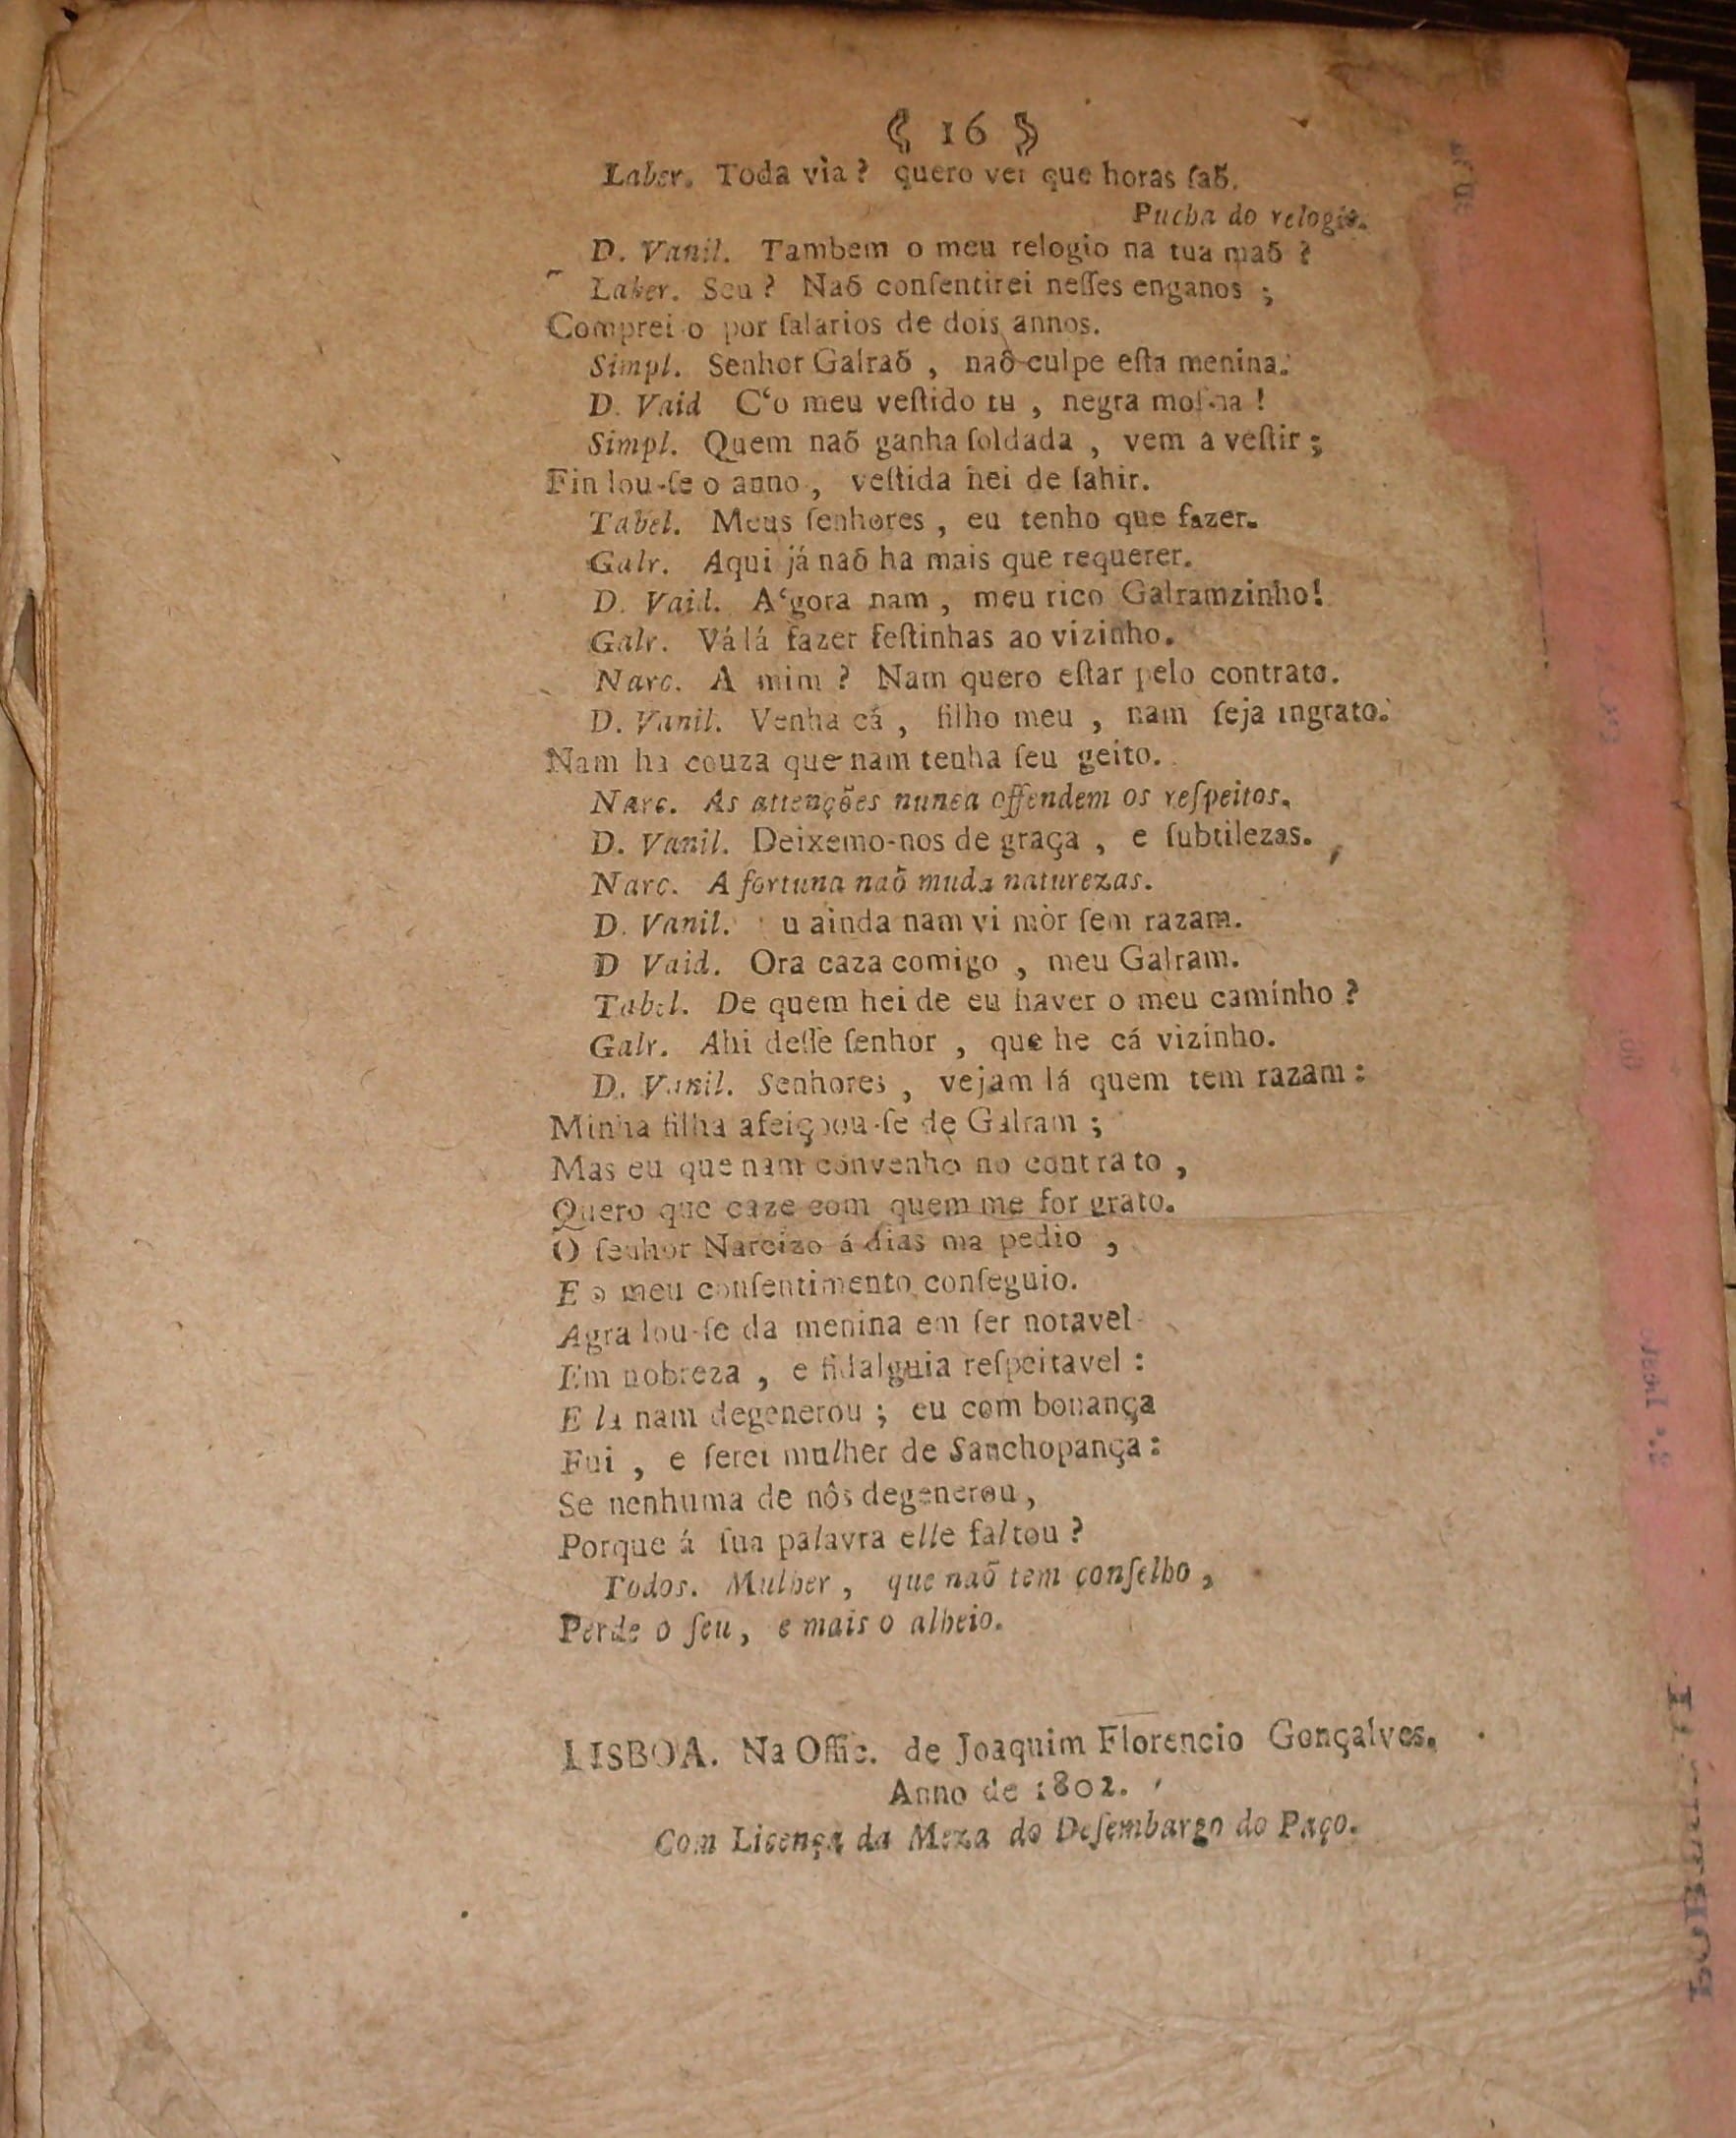 ⟪ 16 ⟫
Laber. Toda via ? quero ver que horas ſaõ.
Pucha do relogio.
D. Vanil. Tambem o meu relogio na tua maõ ?
Laber. Seu ? Naõ conſentirei neſſes enganos ;
Comprei o por ſalarios de dois annos.
Simpl. Senhor Galraõ , naõ culpe eſta menina.
D. Vaid C‘o meu veſtido tu , negra mofina !
Simpl. Quem naõ ganha ſoldada , vem a veſtir ;
Fin lou-ſe o anno , veſtida hei de ſahir.
Tabel. Meus ſenhores , eu tenho que fazer.
Galr. Aqui já naõ ha mais que requerer.
D. Vaid. A‘gora nam , meu rico Galramzinho!
Galr. Vá lá fazer feſtinhas ao vizinho.
Narc. A mim ? Nam quero eſtar pelo contrato.
D. Vanil. Venha cá , filho meu , nam ſeja ingrato.
Nam ha couza que nam tenha ſeu geito.
Narc. As attenções nunca offendem os reſpeitos.
D. Vanil. Deixemo-nos de graça , e ſubtilezas.
Narc. A fortuna naõ muda naturezas.
D. Vanil. u ainda nam vi mòr ſem razam.
D Vaid. Ora caza comigo , meu Galram.
Tabel. De quem hei de eu haver o meu caminho ?
Galr. Ahi deſſe ſenhor , que he cá vizinho.
D. Vanil. Senhores , vejam lá quem tem razam :
Minha filha afeiçoou-ſe de Galram ;
Mas eu que nam convenho no contrato ,
Quero que caze com quem me for grato.
O ſenhor Narcizo á dias ma pedio ,
E o meu conſentimento conſeguio.
Agra lou-ſe da menina em ſer notavel
Em nobreza , e fidalguia reſpeitavel :
E la nam degenerou ; eu com bonança
Fui , e ſerei mulher de Sanchopança :
Se nenhuma de nôs degenerou ,
Porque á ſua palavra elle faltou ?
Todos. Mulher , que naõ tem conſelho ,
Perde o ſeu , e mais o alheio.
LISBOA. Na Offic. de Joaquim Florencio Gonçalves.
Anno de 1802.
Com Licença da Meza do Deſembargo do Paço.